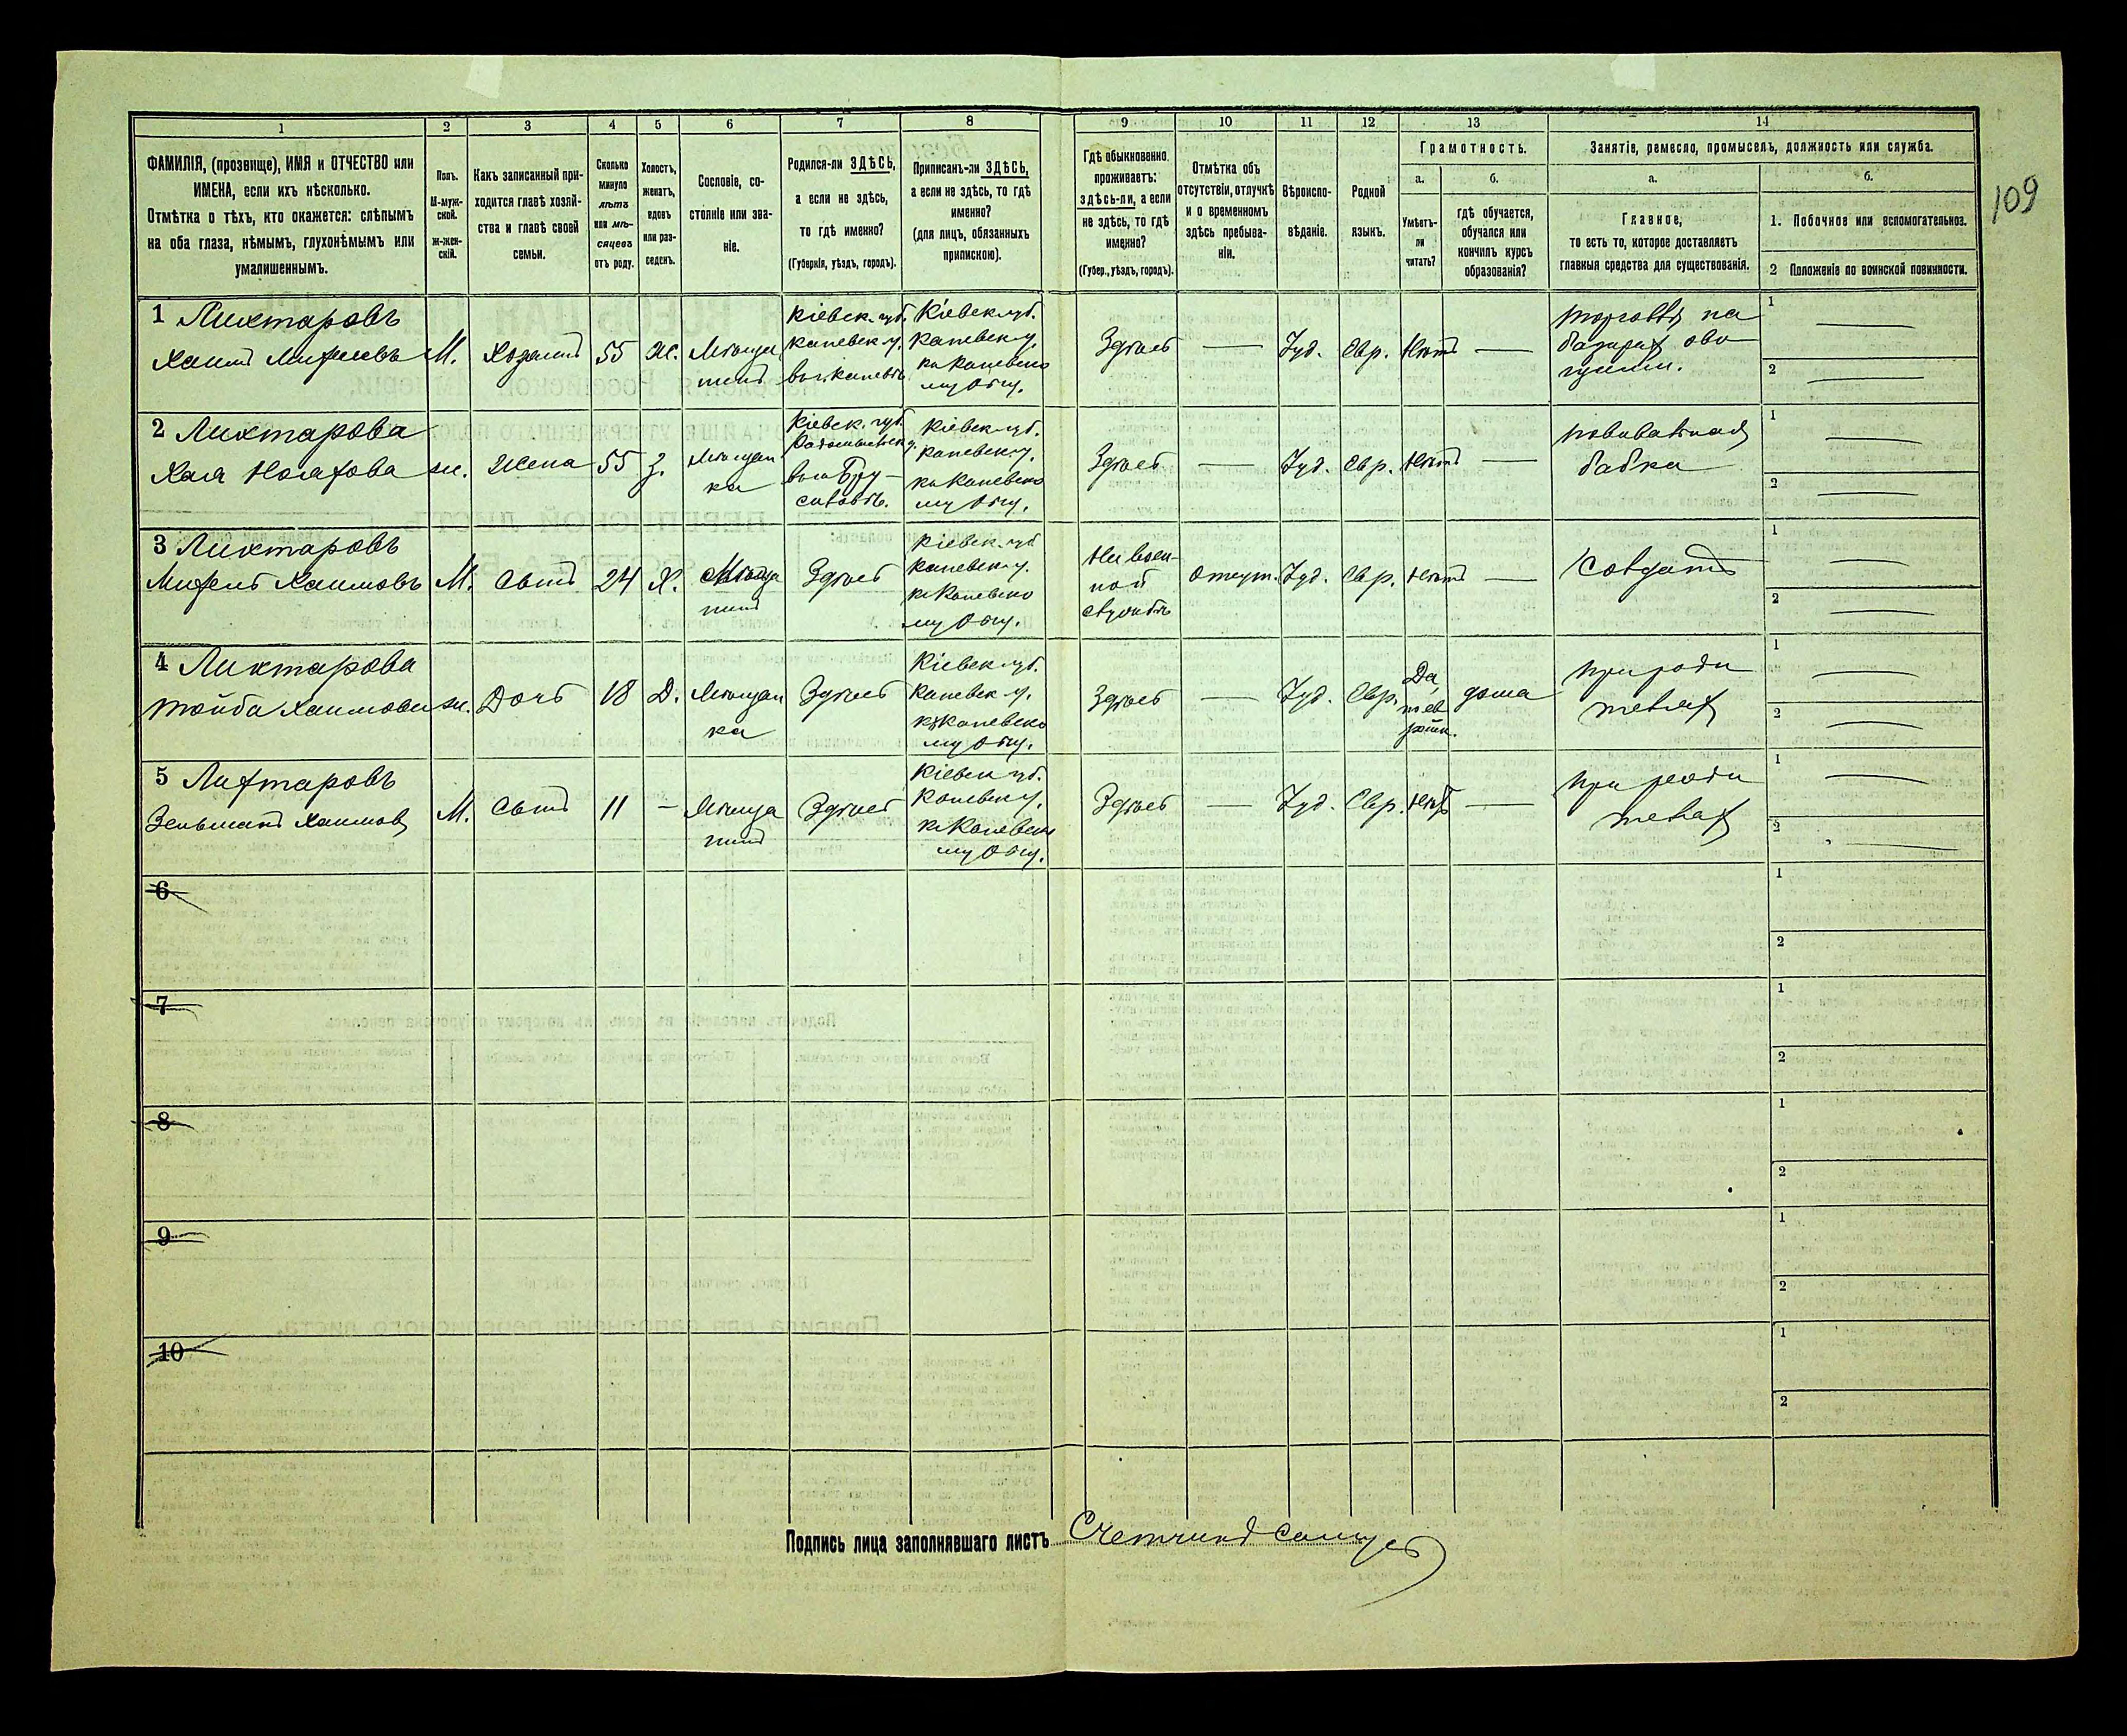 1 2 3 4 5 6 7 8 9 10 11 12 13 14
ФАМИЛІЯ, (прозвище), ИМЯ и ОТЧЕСТВО или
ИМЕНА, если ихъ нѣсколько.
Отмѣтка о тѣхъ, кто окажется: слѣпымъ
на оба глаза, нѣмымъ, глухонѣмымъ или
умалишеннымъ.
Полъ.
М-муж-
ской.
ж-жен-
скій.
Какъ записанный при-
ходится главѣ хозяй-
ства и главѣ своей
семьи.
Сколько
минуло
лѣтъ
или мѣ-
сяцевъ
отъ роду.
Холостъ,
женатъ,
вдовъ
или раз-
веденъ.
Сословіе, со-
стояніе или зва-
ніе.
Родился-ли ЗДѢСЬ,
а если не здѣсь,
то гдѣ именно?
(Губернія, уѣздъ, городъ).
Приписанъ-ли ЗДѢСЬ,
а если не здѣсь, то гдѣ
именно?
(для лицъ, обязанныхъ
припискою).
Гдѣ обыкновенно
проживаетъ:
здѣсь-ли, а если
не здѣсь, то гдѣ
именно?
(Губер., уѣздъ, городъ).
Отмѣтка объ
отсутствіи, отлучкѣ
и о временномъ
здѣсь пребыва-
ніи.
Вѣроиспо-
вѣданіе.
Родной
языкъ.
Грамотность.
а.
Умѣетъ-
ли
читать?
б.
гдѣ обучается,
обучался или
кончилъ курсъ
образованія?
Занятіе, ремесло, промыселъ, должность или служба.
а.
Главное,
то есть то, которое доставляетъ
главныя средства для существованія.
б.
1. Побочное или вспомогательное.
2 Положеніе по воинской повинности.
109
1 Лихтаровъ
Хаимъ М.
Хозяинъ
55
Ж.
Мѣща
нинъ
Кіевск. губ.
Каневск. у.
Кіевск. губ.
Каневск. у.
къ Каневско
му Общ.
Здѣсь
—
Іуд.
Евр.
Нѣтъ
—
торговля на
базарѣ ово
щами.
1 —
2 —
2 Лихтарова
Хая
ж.
Жена
55
З.
Мѣщан
ка
Кіевск. губ.
Радомысльск. у.
Бру-
силовѣ.
Кіевск. губ.
Каневск. у.
къ Каневско
му Общ.
Здѣсь
—
Іуд.
Евр.
Нѣтъ
—
повивальная
бабка
1 —
2 —
3 Лихтаровъ
Хаимовъ
М.
Сынъ
24
Х.
Мѣща
нинъ
Здѣсь
Кіевск. губ
Каневск. у.
къ Каневско
му Общ.
На воен-
ной
службѣ
отсут.
Іуд.
Евр.
Нѣтъ
—
Солдатъ
1 —
2 —
4 Лихтарова
Тойба Хаимова
ж.
Дочь
18
Д.
Мѣщан
ка
Здѣсь
Кіевск. губ.
Каневск. у.
къ Каневско
му Общ.
Здѣсь
—
Іуд.
Евр.
Да,
дома
при роди
теляхъ
1 —
2 —
5 Лихтаровъ
Зельманъ Хаимов
М.
Сынъ
11
—
Мѣща
нинъ
Здѣсь
Кіевск губ.
Каневск у.
къ Каневско
му Общ.
Здѣсь
—
Іуд.
Евр.
Нѣтъ
—
при роди
теляхъ
1 —
2 —
6
1
2
7
1
2
8
1
2
9
1
2
10
1
2
Подпись лица заполнявшаго листъ Счетчикъ